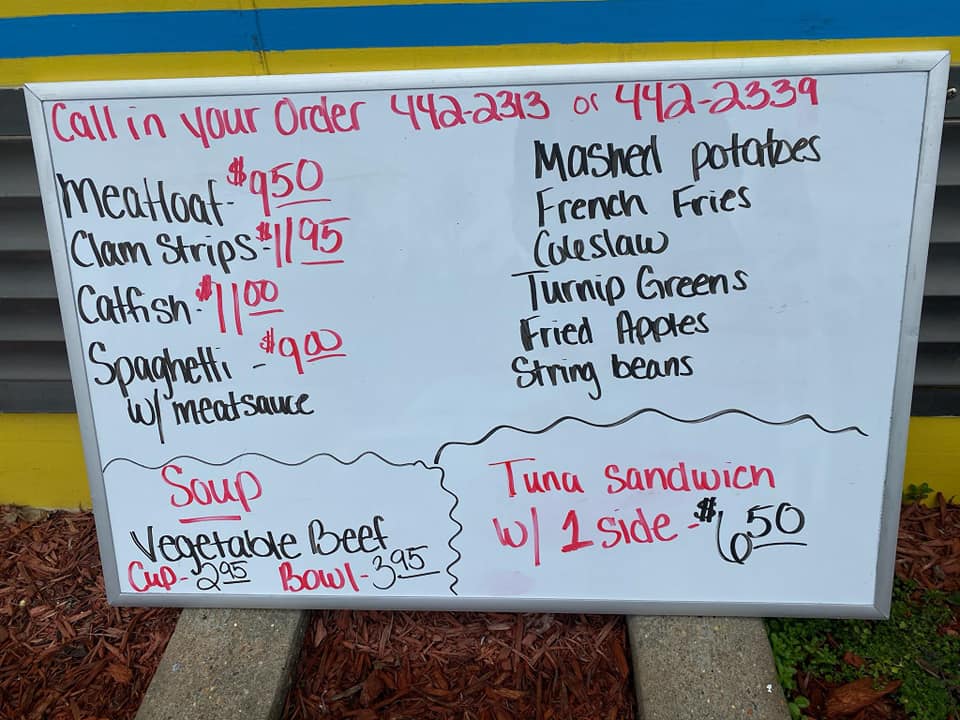 Call in your Order 442-2313 or 442-2339
Meatloaf - $9.50
Clam Strips - $11.95
Catfish - $11.00
Spaghetti - $9.00
w/ meatsauce
Mashed potatoes
French Fries
Coleslaw
Turnip Greens
Fried Apples
String beans
Soup
Vegetable Beef
Cup - 2.95 Bowl - 3.95
Tuna Sandwich
w/ 1 side - $6.50